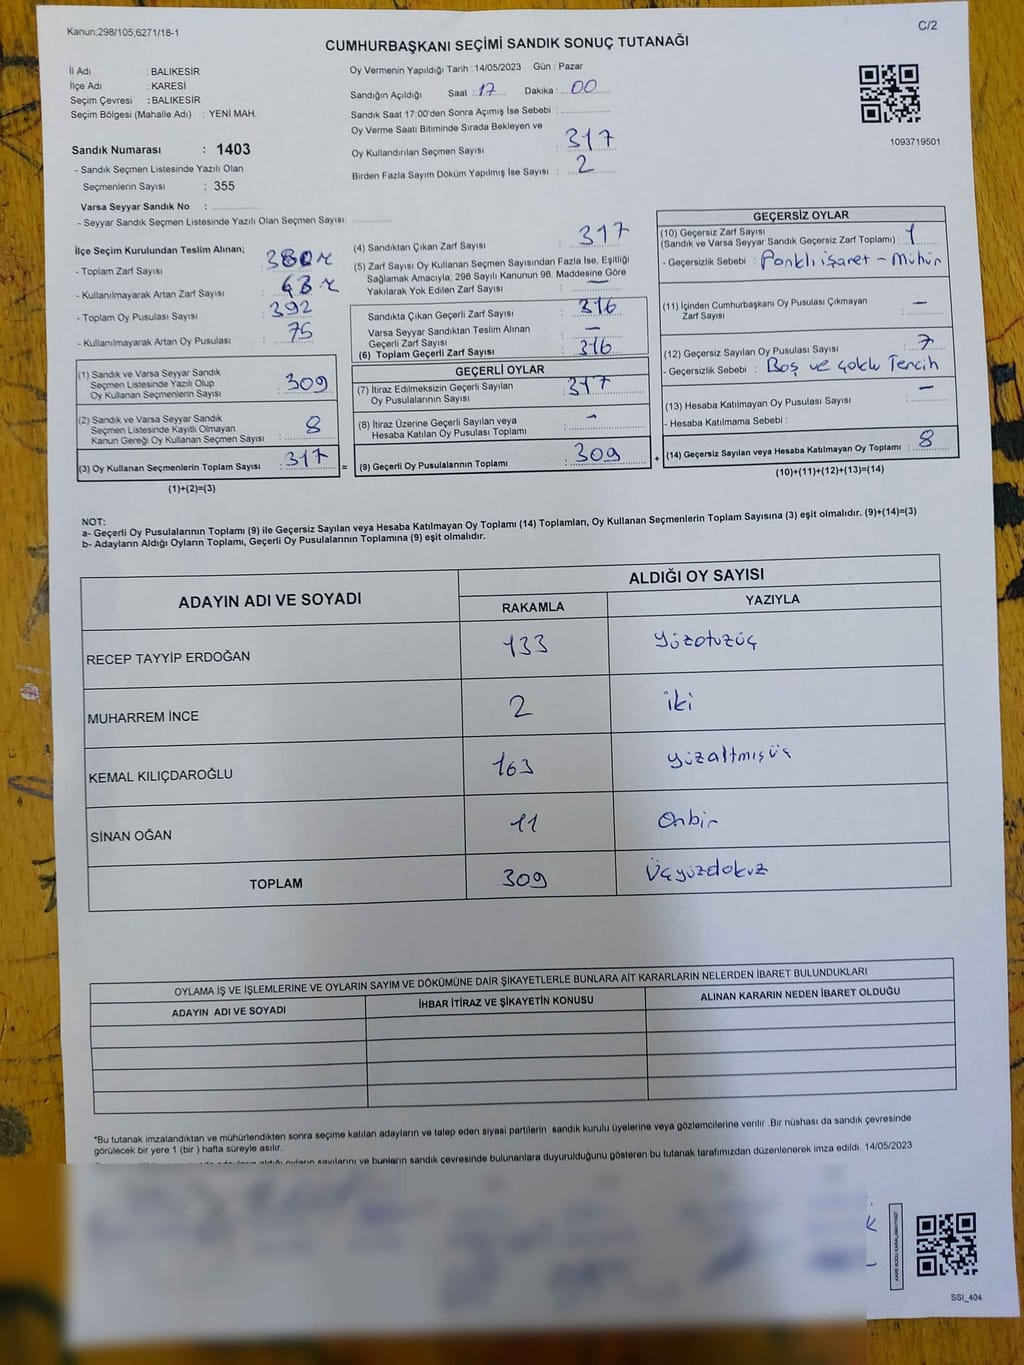 Kanun;298/105,6271/18-1
C/2
CUMHURBAŞKANI SEÇİMİ SANDIK SONUÇ TUTANAĞI
İl Adı : BALIKESİR
İlçe Adı : KARESİ
Seçim Çevresi : BALIKESİR
Seçim Bölgesi (Mahalle Adı) : YENİ MAH.
Sandık Numarası : 1403
- Sandık Seçmen Listesinde Yazılı Olan
Seçmenlerin Sayısı : 355
Varsa Seyyar Sandık No :
- Seyyar Sandık Seçmen Listesinde Yazılı Olan Seçmen Sayısı:
Oy Vermenin Yapıldığı Tarih : 14/05/2023 Gün : Pazar
Sandığın Açıldığı Saat : 17 Dakika : 00
Sandık Saat 17:00'den Sonra Açımış İse Sebebi :
Oy Verme Saati Bitiminde Sırada Bekleyen ve
Oy Kullandırılan Seçmen Sayısı : 317
Birden Fazla Sayım Döküm Yapılmış İse Sayısı : 2
1093719501
İlçe Seçim Kurulundan Teslim Alınan;
- Toplam Zarf Sayısı : 380
- Kullanılmayarak Artan Zarf Sayısı : 63
- Toplam Oy Pusulası Sayısı : 392
- Kullanılmayarak Artan Oy Pusulası : 75
(1) Sandık ve Varsa Seyyar Sandık
Seçmen Listesinde Yazılı Olup
Oy Kullanan Seçmenlerin Sayısı : 309
(2) Sandık ve Varsa Seyyar Sandık
Seçmen Listesinde Kayıtlı Olmayan
Kanun Gereği Oy Kullanan Seçmen Sayısı : 8
(3) Oy Kullanan Seçmenlerin Toplam Sayısı : 317
(1)+(2)=(3)
=
(4) Sandıktan Çıkan Zarf Sayısı : 317
(5) Zarf Sayısı Oy Kullanan Seçmen Sayısından Fazla İse, Eşitliği
Sağlamak Amacıyla, 298 Sayılı Kanunun 98. Maddesine Göre
Yakılarak Yok Edilen Zarf Sayısı : —
Sandıkta Çıkan Geçerli Zarf Sayısı : 316
Varsa Seyyar Sandıktan Teslim Alınan
Geçerli Zarf Sayısı : —
(6) Toplam Geçerli Zarf Sayısı : 316
GEÇERLİ OYLAR
(7) İtiraz Edilmeksizin Geçerli Sayılan
Oy Pusulalarının Sayısı : 317
(8) İtiraz Üzerine Geçerli Sayılan veya
Hesaba Katılan Oy Pusulası Toplamı : -
(9) Geçerli Oy Pusulalarının Toplamı : 309
+
GEÇERSİZ OYLAR
(10) Geçersiz Zarf Sayısı
(Sandık ve Varsa Seyyar Sandık Geçersiz Zarf Toplamı) : 1
- Geçersizlik Sebebi : Farklı işaret - Mühür
(11) İçinden Cumhurbaşkanı Oy Pusulası Çıkmayan
Zarf Sayısı : —
(12) Geçersiz Sayılan Oy Pusulası Sayısı : 7
- Geçersizlik Sebebi : Boş ve çoklu Tercih
(13) Hesaba Katılmayan Oy Pusulası Sayısı : —
- Hesaba Katılmama Sebebi :
(14) Geçersiz Sayılan veya Hesaba Katılmayan Oy Toplamı : 8
(10)+(11)+(12)+(13)=(14)
NOT:
a- Geçerli Oy Pusulalarının Toplamı (9) ile Geçersiz Sayılan veya Hesaba Katılmayan Oy Toplamı (14) Toplamları, Oy Kullanan Seçmenlerin Toplam Sayısına (3) eşit olmalıdır. (9)+(14)=(3)
b- Adayların Aldığı Oyların Toplamı, Geçerli Oy Pusulalarının Toplamına (9) eşit olmalıdır.
ADAYIN ADI VE SOYADI
ALDIĞI OY SAYISI
RAKAMLA YAZIYLA
RECEP TAYYİP ERDOĞAN 133 yüzotuzüç
MUHARREM İNCE 2 iki
KEMAL KILIÇDAROĞLU 163 yüzaltmışüç
SİNAN OĞAN 11 Onbir
TOPLAM 309 Üçyüzdokuz
OYLAMA İŞ VE İŞLEMLERİNE VE OYLARIN SAYIM VE DÖKÜMÜNE DAİR ŞİKAYETLERLE BUNLARA AİT KARARLARIN NELERDEN İBARET BULUNDUKLARI
ADAYIN ADI VE SOYADI İHBAR İTİRAZ VE ŞİKAYETİN KONUSU ALINAN KARARIN NEDEN İBARET OLDUĞU
*Bu tutanak imzalandıktan ve mühürlendikten sonra seçime katılan adayların ve talep eden siyasi partilerin sandık kurulu üyelerine veya gözlemcilerine verilir .Bir nüshası da sandık çevresinde
görülecek bir yere 1 (bir ) hafta süreyle asılır.
aldığı oyların sayılarını ve bunların sandık çevresinde bulunanlara duyurulduğunu gösteren bu tutanak tarafımızdan düzenlenerek imza edildi. 14/05/2023
SSI_404